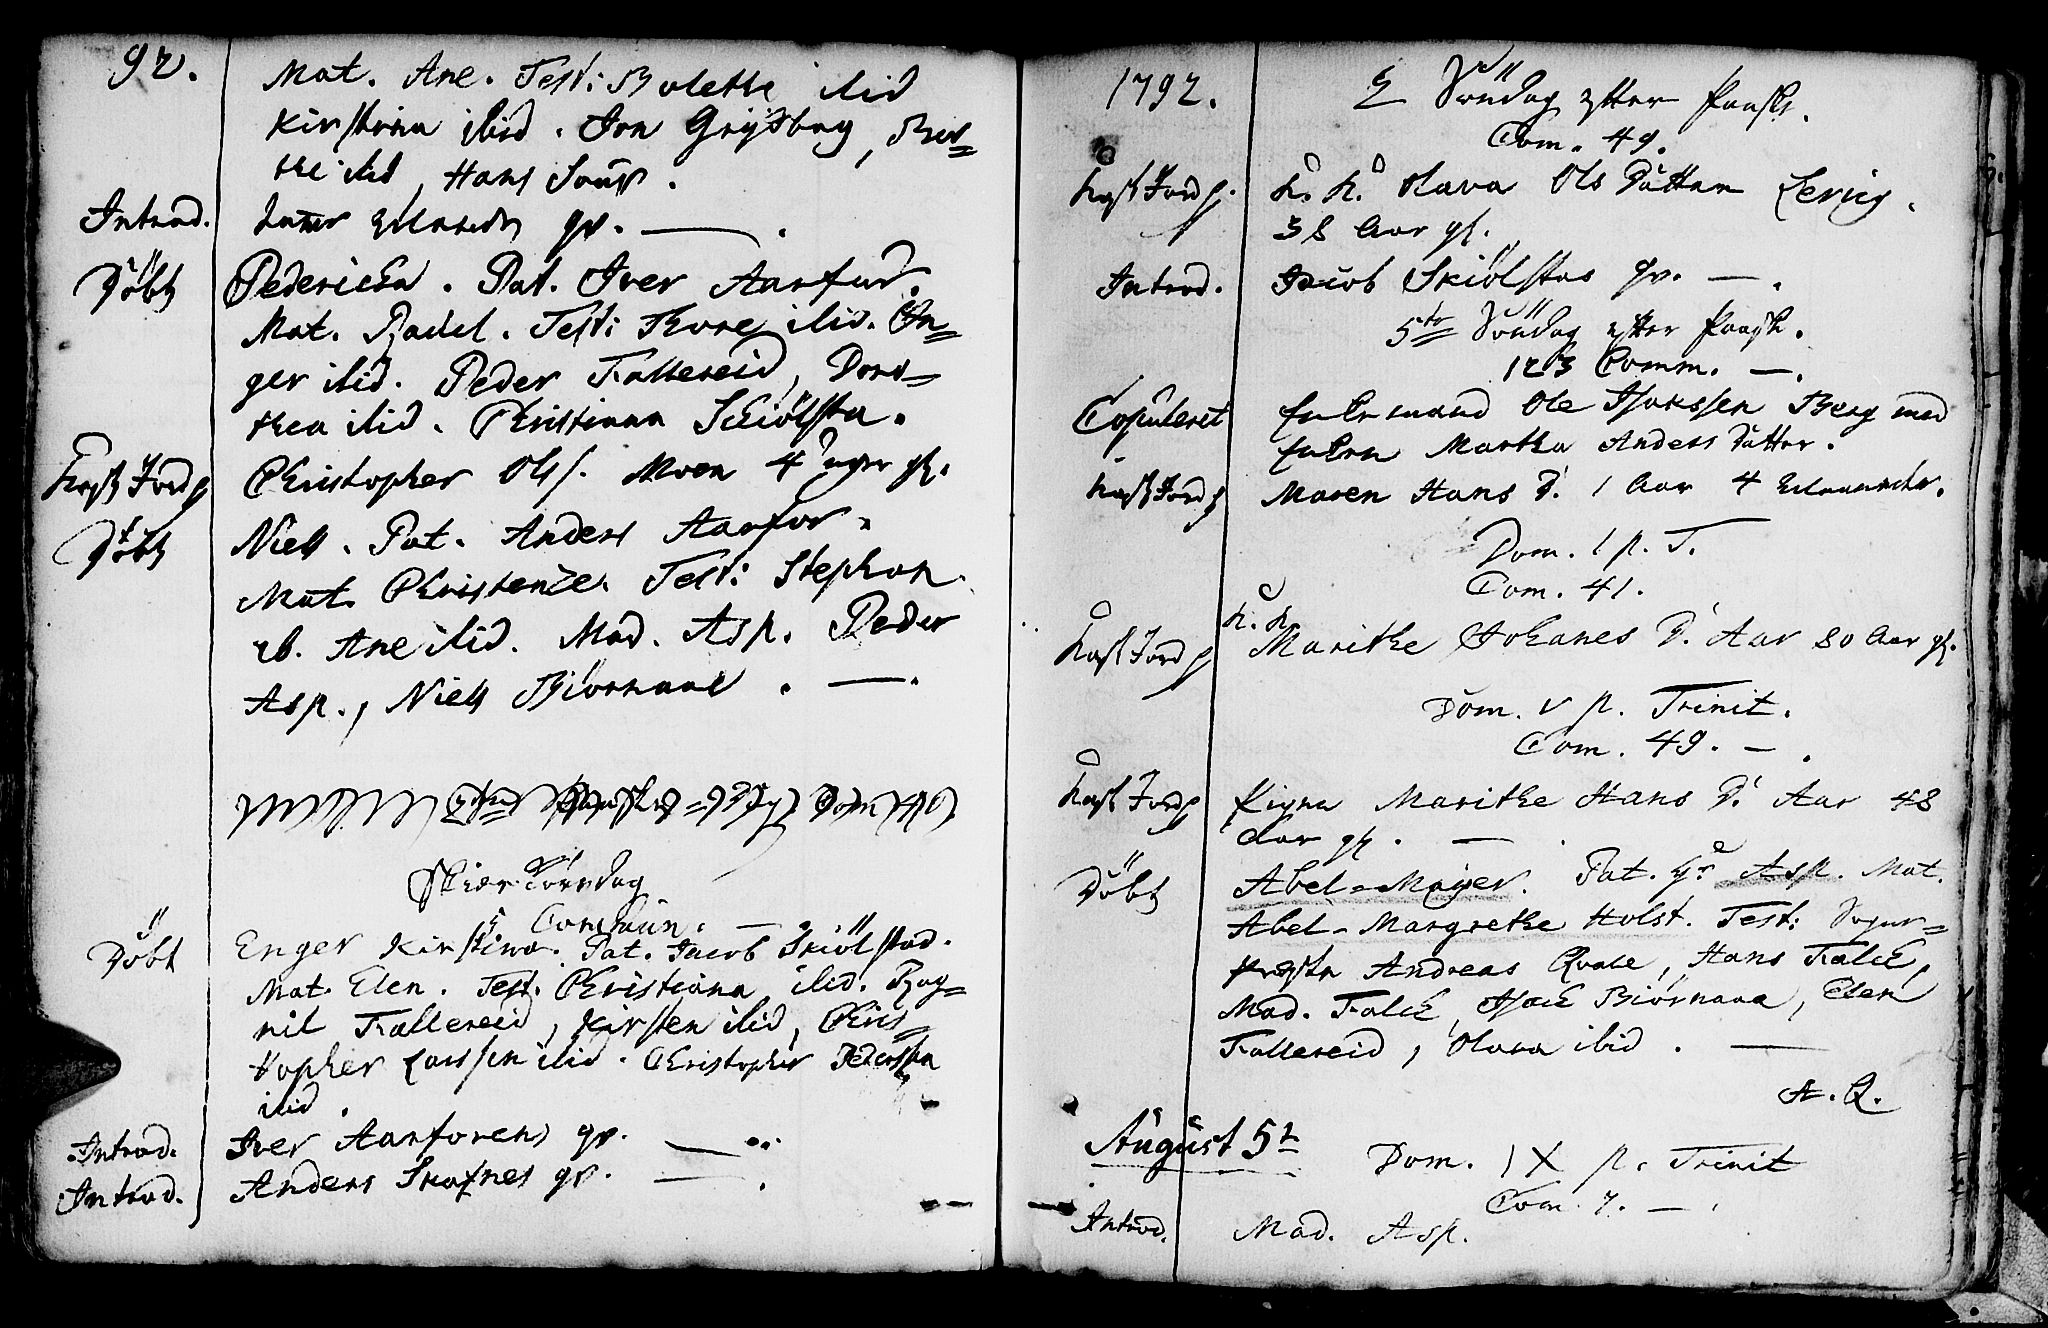 92.
Mat. Ane. Test: Bolethe ibid
Kirstina ibid. Jon Grÿtbag,
ibid, Hans
Introd. gv. — .
Döbt Pedericha. Pat. Iver Aarfur.
Mat. Radel. Test: Thore ibid. In=
ger ibid. Peder Fallereid, Doro=
thea ibid. Christiana Schiölsta.
Kast Jord p Christopher Ols. Moen 4 uger gl.
Döbt Niels. Pat. Anders Aarfor.
Mat. Christence. Test: Stephan
ib. Ane ibid. Mad. Asp. Peder
Asp., Niels Biörnaae. — .
Skier Torsdag
5 Comūn. —
Döbt Enger Kirstina. Pat. Jacob Skiölstad.
Mat. Elen. Test. Christiana ibid. Rag=
nil Fallereid, Kirsten ibid, Chris=
topher Larssen ibid. Christopher Pederssen
ibid.
Introd. Iver Aarforens gv. —
Introd. Anders Skafnes gv. — .
1792.
2 Söndag efter Paaske.
Com. 49.
Kast Jord p. K. K. Olava Ols Datter Lering.
38 Aar gl.
Introd. Jacob Skiölstas gv. — .
5te Söndag efter Paaske.
123 Comm. — .
Copuleret Enkemand Ole Isakssen Berg med
Enken Martha Anders Datter.
Kast Jord p Maren Hans D. 1 Aar 4 Maaneder.
Dom. 1 p. T.
Com. 41.
Kast Jord p K. K. Marithe Johanes D. Aar 80 Aar gl.
Dom. V p. Trinit.
Com. 49. — .
Kast Jord p Pigen Marithe Hans D. Aar 48
Aar gl. — .
Döbt Abel-Mayer. Pat. Hr Asp. Mat.
Abel-Margrethe Holst. Test: Sogne=
Præsten Andreas Qvale, Hans Falch,
Mad. Falch, Isach Biörnaaa, Elen
Fallereid, Olava ibid. —
A. Q.
Aūgūst 5t
Dom. IX p. Trinit
Com. 7. — .
Introd. Mad. Asp.